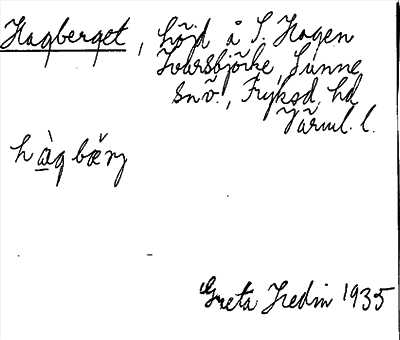 Hagberget, höjd å S. Hagen
Ivarsbjörke, Sunne
sn o., Fryksd. hd
Värml. l.
hàg bærj
Greta Hedin 1935